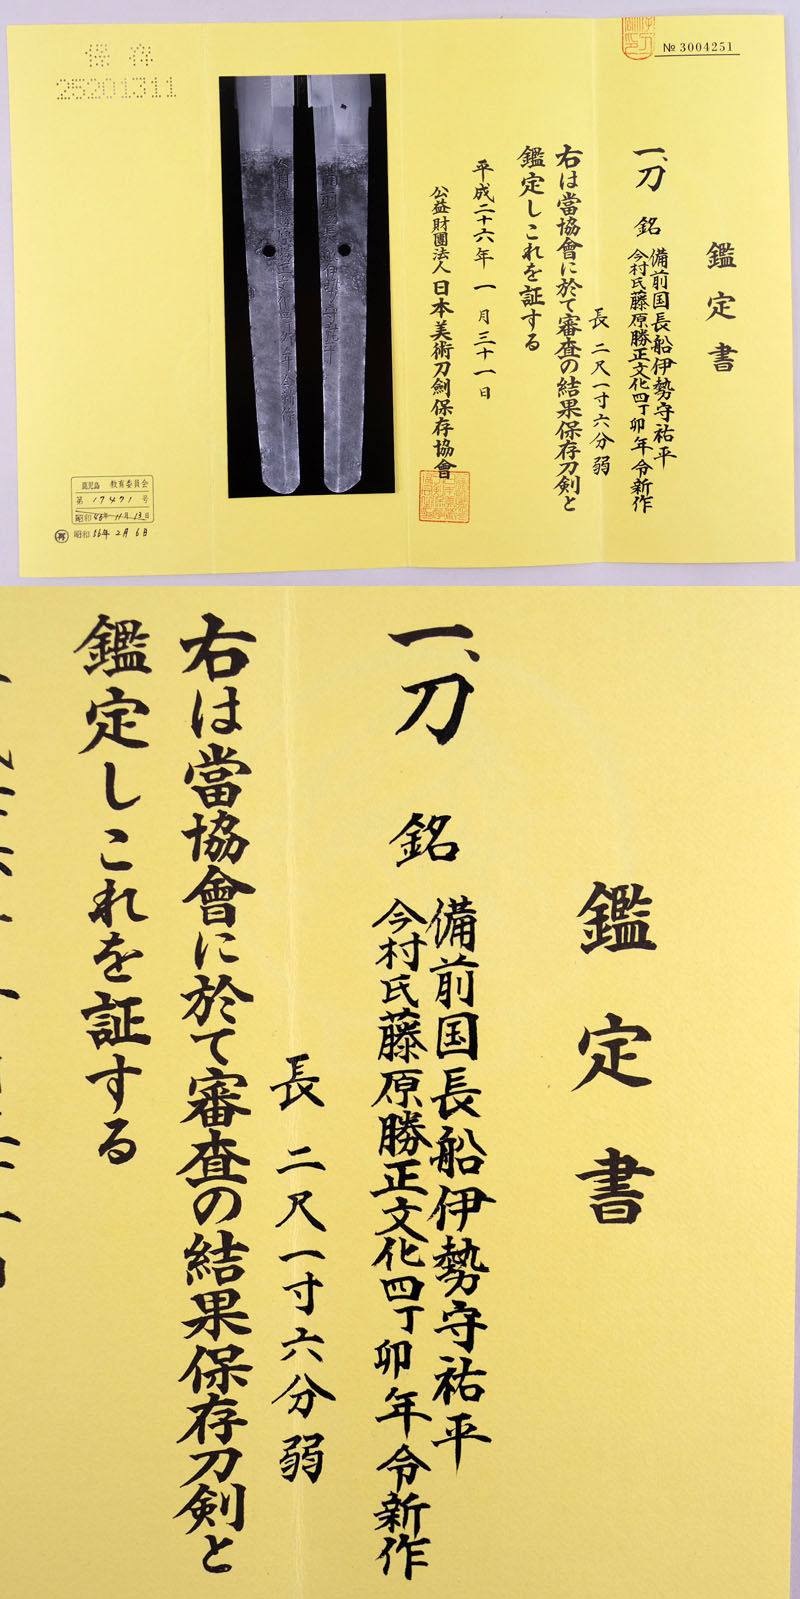 № 3004251
鑑定書
一、刀 銘 備前国長船伊勢守祐平
今村氏藤原勝正文化四丁卯年令新作
長 二尺一寸六分弱
右は當協會に於て審査の結果保存刀剣と
鑑定しこれを証する
平成二十六年 一月三十一日
公益財團法人 日本美術刀劍保存協會
保存
25201311
鹿児島 教育委員会
第 17471 号
昭和 43年 11月 13日
再 昭和 56年 2月 6日
鑑定書
一、刀 銘 備前国長船伊勢守祐平
今村氏藤原勝正文化四丁卯年令新作
長 二尺一寸六分弱
右は當協會に於て審査の結果保存刀剣と
鑑定しこれを証する